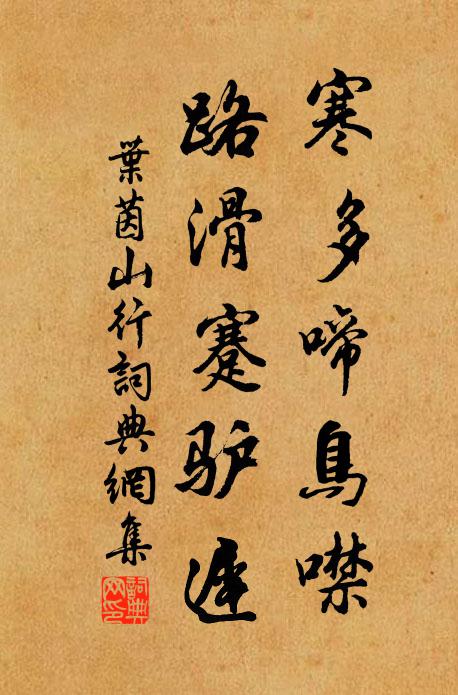 寒多啼鳥噤
路滑蹇驴遲
葉茵山行詞典網集
詞典网印